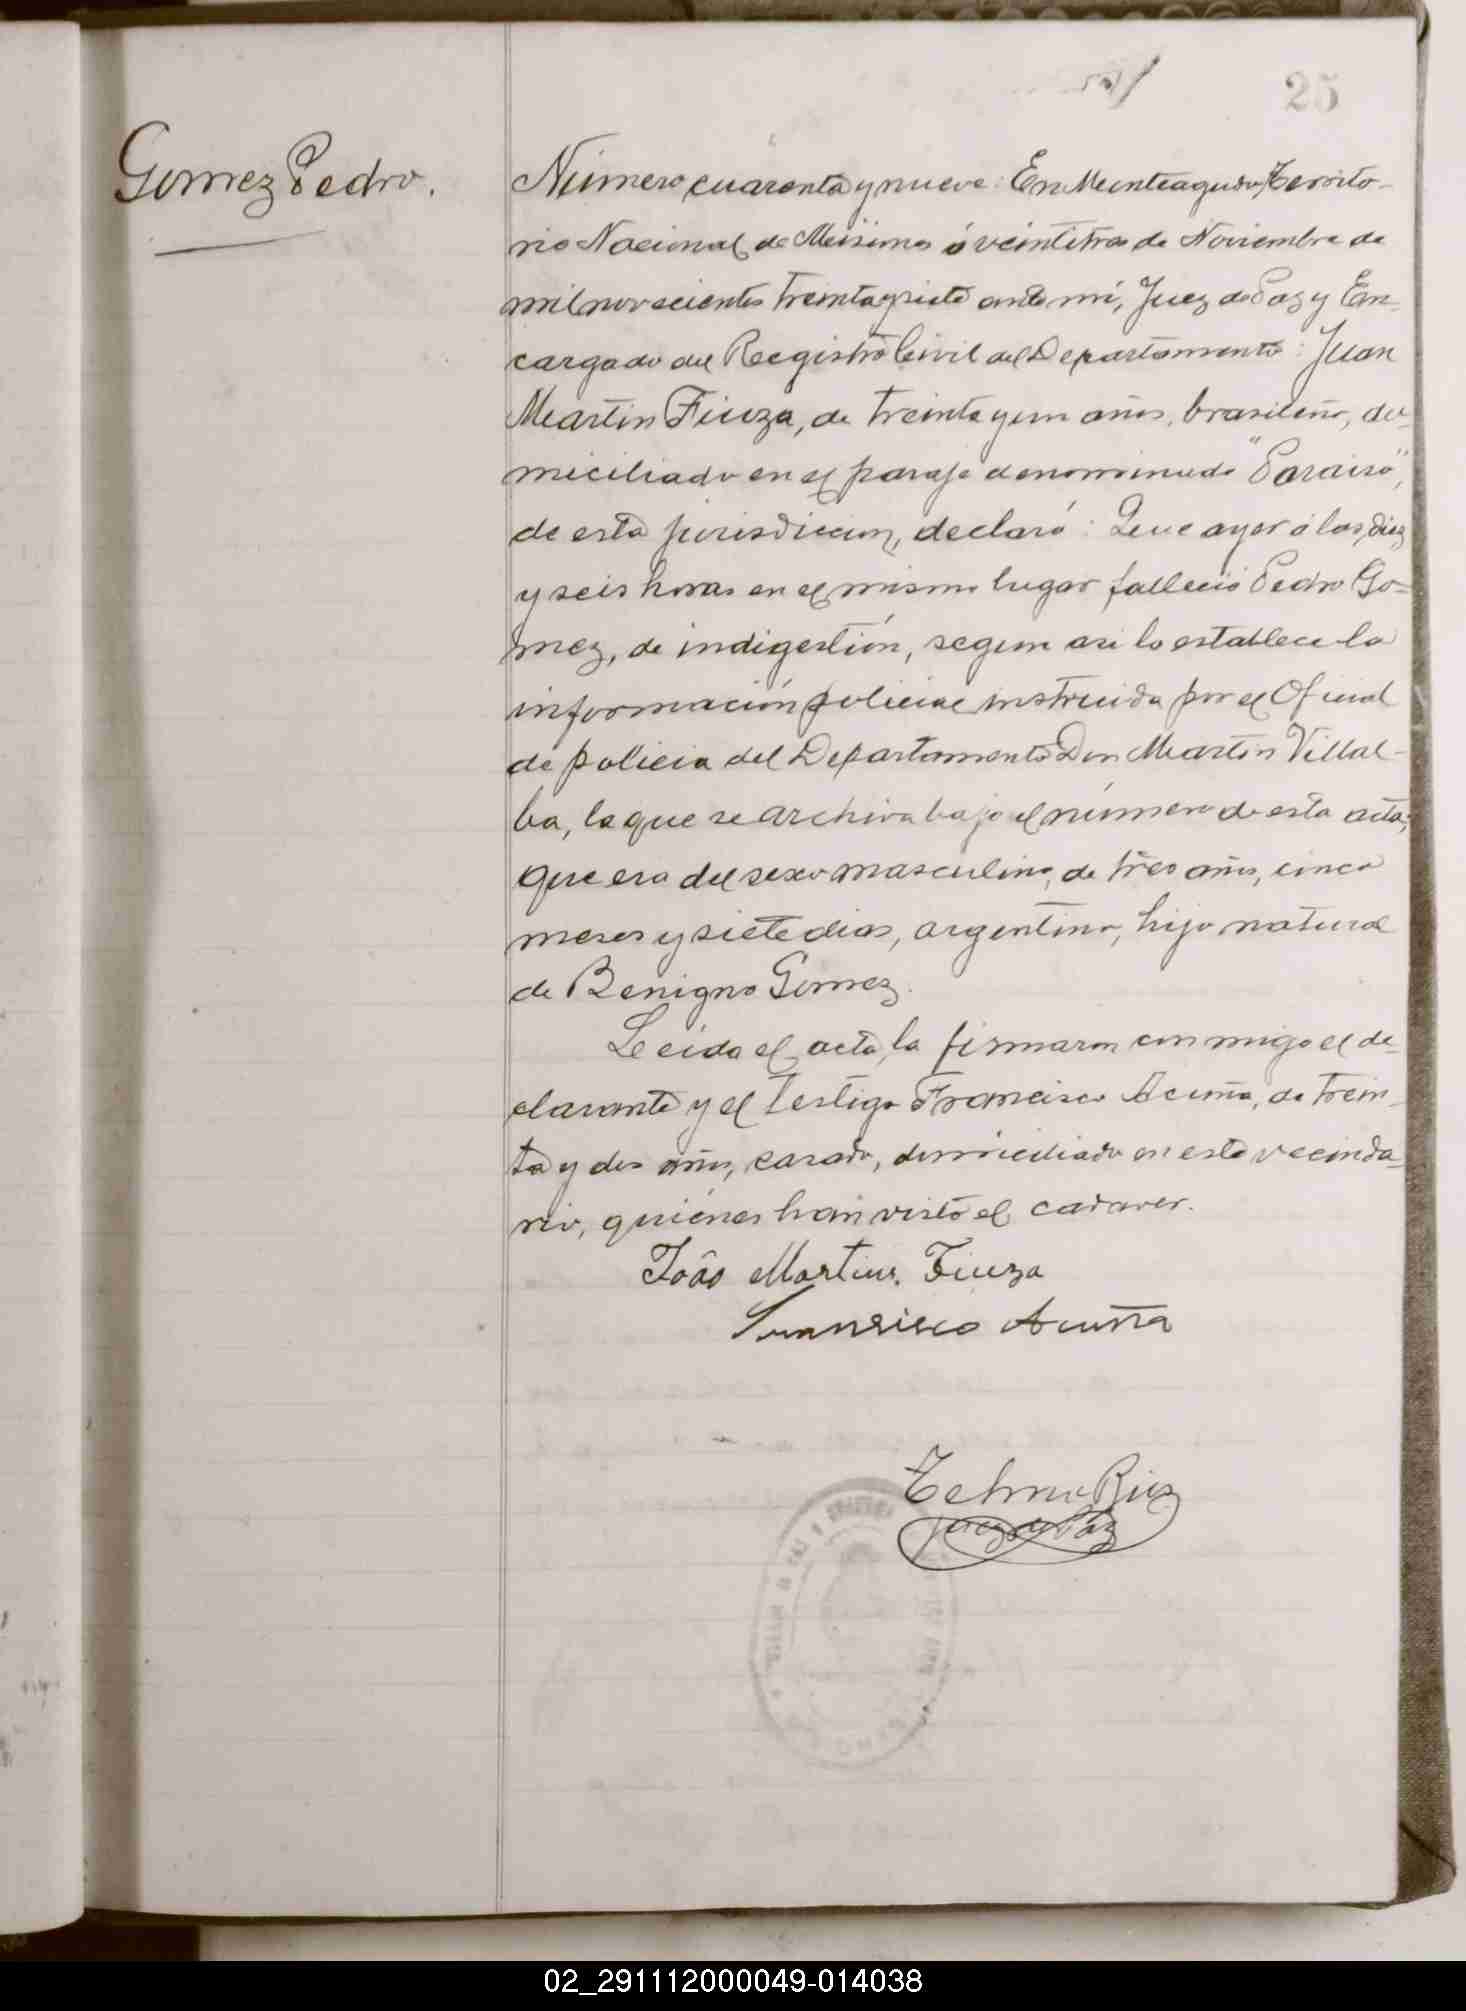 25
Gomez Pedro.
Número cuarenta y nueve: En Monteagudo, Territo-
rio Nacional de Misiones á veintitres de Noviembre de
mil novecientos treinta y siete ante mí, Juez de Paz y En-
cargado del Registro Civil del Departamento: Juan
Martin Fiuza, de treinta y un años, brasileño, do-
miciliado en el paraje denominado "Paraiso",
de esta jurisdiccion, declaró: Que ayer á las diez
y seis horas en el mismo lugar falleció Pedro Go-
mez, de indigestión, segun asi lo establece la
información policial instruida por el Oficial
de policia del Departamento Don Martin Villal-
ba, la que se archiva bajo el número de esta acta;
que era del sexo masculino, de tres años, cinco
meses y siete dias, argentino, hijo natural
de Benigno Gomez.
Leida el acta, la firmaron conmigo el de-
clarante y el testigo Francisco Acuña, de trein-
ta y dos años, casado, domiciliado en este vecinda-
rio, quiénes han visto el cadaver.
João Martins Fiuza
Fransisco Acuña
Telmo
Juez de Paz
02_291112000049-014038